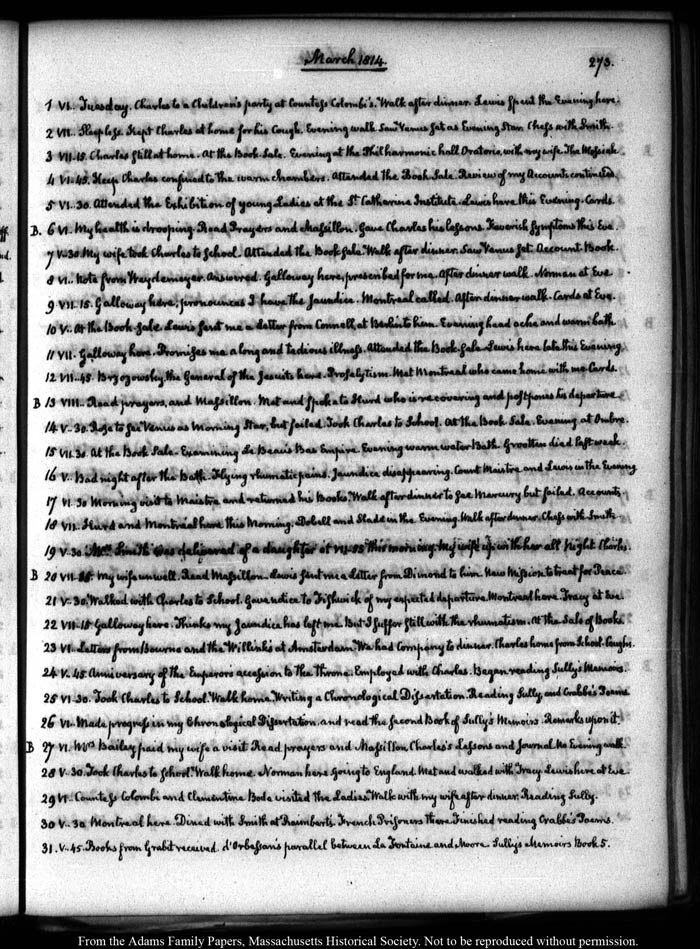 March 1814.
273.
1 VI. Tuesday. Charles to a Children's party at Countess Colombi's. Walk after dinner. Lewis spent the Evening here.
2 VII. Sleepless. Kept Charles at home for his Cough. Evening walk. Saw Venus set as Evening Star. Chess with Smith.
3 VII.15. Charles still at home. At the Book Sale. Evening at the Philharmonic hall Oratorio, with my wife. The Messiah
4 VI.45. Keep Charles confined to the warm chambers. Attended the Book Sale. Review of my Accounts continued.
5 VI.30. Attended the Exhibition of young Ladies at the St Catharine Institute. Lewis here this Evening. Cards.
B. 6 VI. My health is drooping. Read Prayers and Massillon. Gave Charles his lessons. Feverish symptoms this Eve.
7 V.30 My wife took Charles to School. Attended the Book Sale. Walk after dinner. Saw Venus set. Account Book.
8 VI. Note from Weydemeyer. Answered. Galloway here; prescribed for me. After dinner walk. Norman at Eve
9 VII.15. Galloway here; pronounces I have the Jaundice. Montreal called. After dinner walk. Cards at Eve.
10 V. At the Book Sale. Lewis sent me a letter from Connell, at Berlin to him. Evening head ache and warm bath
11 VII. Galloway here. Promises me a long and tedious illness. Attended the Book Sale. Lewis here late this Evening.
12 VII.45. Brzozowsky, the General of the Jesuits here. Proselytism. Met Montreal who came home with me. Cards.
B 13 VIII. Read prayers, and Massillon. Met and spoke to Hurd who is recovering and postpones his departure
14 V.30. Rose to see Venus as Morning Star, but failed. Took Charles to School. At the Book Sale. Evening at Ombre.
15 VII.30. At the Book Sale. Examining Le Beau's Bas Empire. Evening warm water Bath. Grootten died last week.
16 V. Bad night after the Bath. Flying rheumatic pains. Jaundice disappearing. Count Maistre and Lewis in the Evening
17 VI.30 Morning visit to Maistre and returned his Books. Walk after dinner to see Mercury but failed. Accounts
18 VII. Hurd and Montreal here this Morning. Dobell and Slade in the Evening. Walk after dinner. Chess with Smith
19 V.30. Mrs. Smith was delivered of a daughter at VII.05 this morning. My wife up with her all Night. Charles.
B 20 VII. My wife unwell. Read Massillon. Lewis sent me a letter from Dimond to him. New Mission to treat for Peace
21 V.30. Walked with Charles to School. Gave notice to Fishwick of my expected departure. Montreal here. Tracy at Eve.
22 VII.15 Galloway here. Thinks my Jaundice has left me. But I suffer still with the rheumatism. At the Sale of Books.
23 VI. Letters from Bourne and the Willinks at Amsterdam. We had Company to dinner. Charles home from School. Coughs.
24 V.45. Anniversary of the Emperor's accession to the Throne. Employed with Charles. Began reading Sully's Memoirs.
25 VI.30. Took Charles to School. Walk home. Writing a Chronological Dissertation. Reading Sully, and Crabbe's Poems
26 VI. Made progress in my Chronological Dissertation, and read the second Book of Sully's Memoirs. Remarks upon it.
B 27 VI. Mrs Bailey paid my wife a visit. Read prayers and Massillon. Charles's Lessons and Journal. No Evening walk.
28 V.30. Took Charles to School. Walk home. Norman here. Going to England. Met and walked with Tracy. Lewis here at Eve.
29 VI. Countess Colombi and Clementine Bode visited the Ladies. Walk with my wife after dinner. Reading Sully.
30 V.30. Montreal here. Dined with Smith at Raimbert's. French Prisoners there. Finished reading Crabbe's Poems.
31. V.45. Books from Grabit received. d'Orbessan's parallel between La Fontaine and Moore. Sully's Memoirs Book 5.
From the Adams Family Papers, Massachusetts Historical Society. Not to be reproduced without permission.